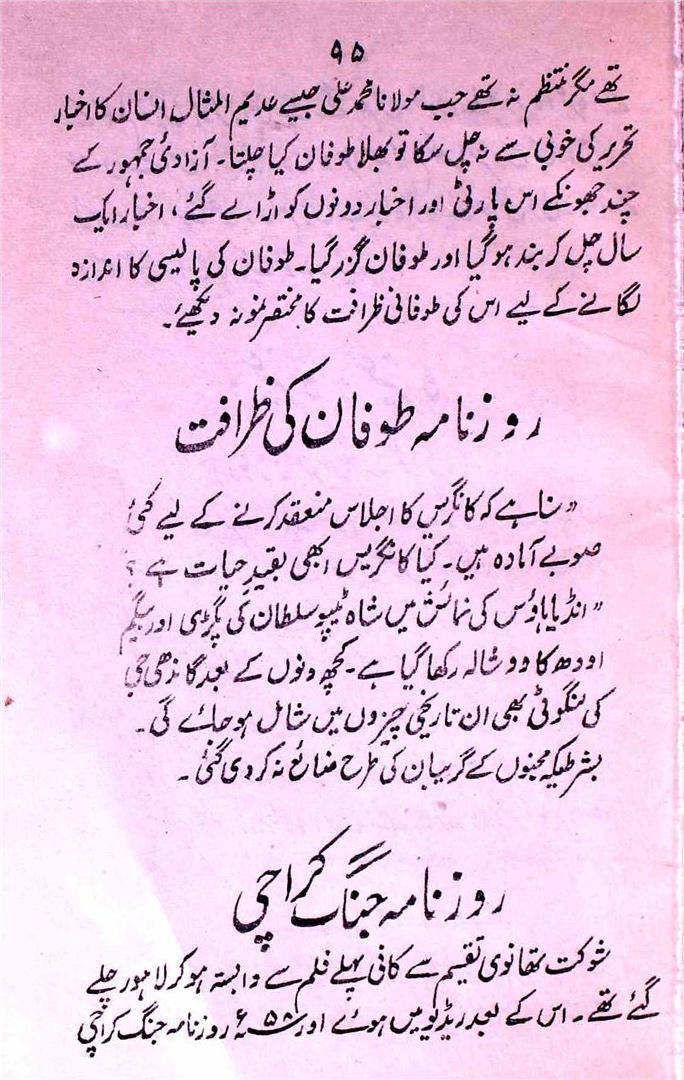 ۹۵
تھے مگر منتظم نہ تھے جب مولانا محمد علی جیسے عدیم المثال انسان کا اخبار
تحریر کی خوبی سے نہ چل سکا تو بھلا طوفان کیا چلتا۔ آزادئ جمہور کے
چند جھونکے اس پارٹی اور اخبار دونوں کو اڑا لے گئے، اخبار ایک
سال چل کر بند ہو گیا اور طوفان گزر گیا۔ طوفان کی پالیسی کا اندازہ
لگانے کے لیے اس کی طوفانی ظرافت کا مختصر نمونہ دیکھئے۔
روزنامہ طوفان کی ظرافت
"سنا ہے کہ کانگریس کا اجلاس منعقد کرنے کے لیے کئی
صوبے آمادہ ہیں۔ کیا کانگریس ابھی بقیدِ حیات ہے؟
"انڈیا ہاؤس کی نمائش میں شاہ ٹیپو سلطان کی پگڑی اور بیگم
اودھ کا دوشالہ رکھا گیا ہے۔ کچھ دنوں کے بعد گاندھی جی
کی لنگوٹی بھی ان تاریخی چیزوں میں شامل ہو جائے گی۔
بشرطیکہ مجنوں کے گریبان کی طرح ضائع نہ کر دی گئی۔
روزنامہ جنگ کراچی
شوکت تھانوی تقسیم سے کافی پہلے فلم سے وابستہ ہو کر لاہور چلے
گئے تھے۔ اس کے بعد ریڈیو میں ہوئے اور ۵۸ء روزنامہ جنگ کراچی